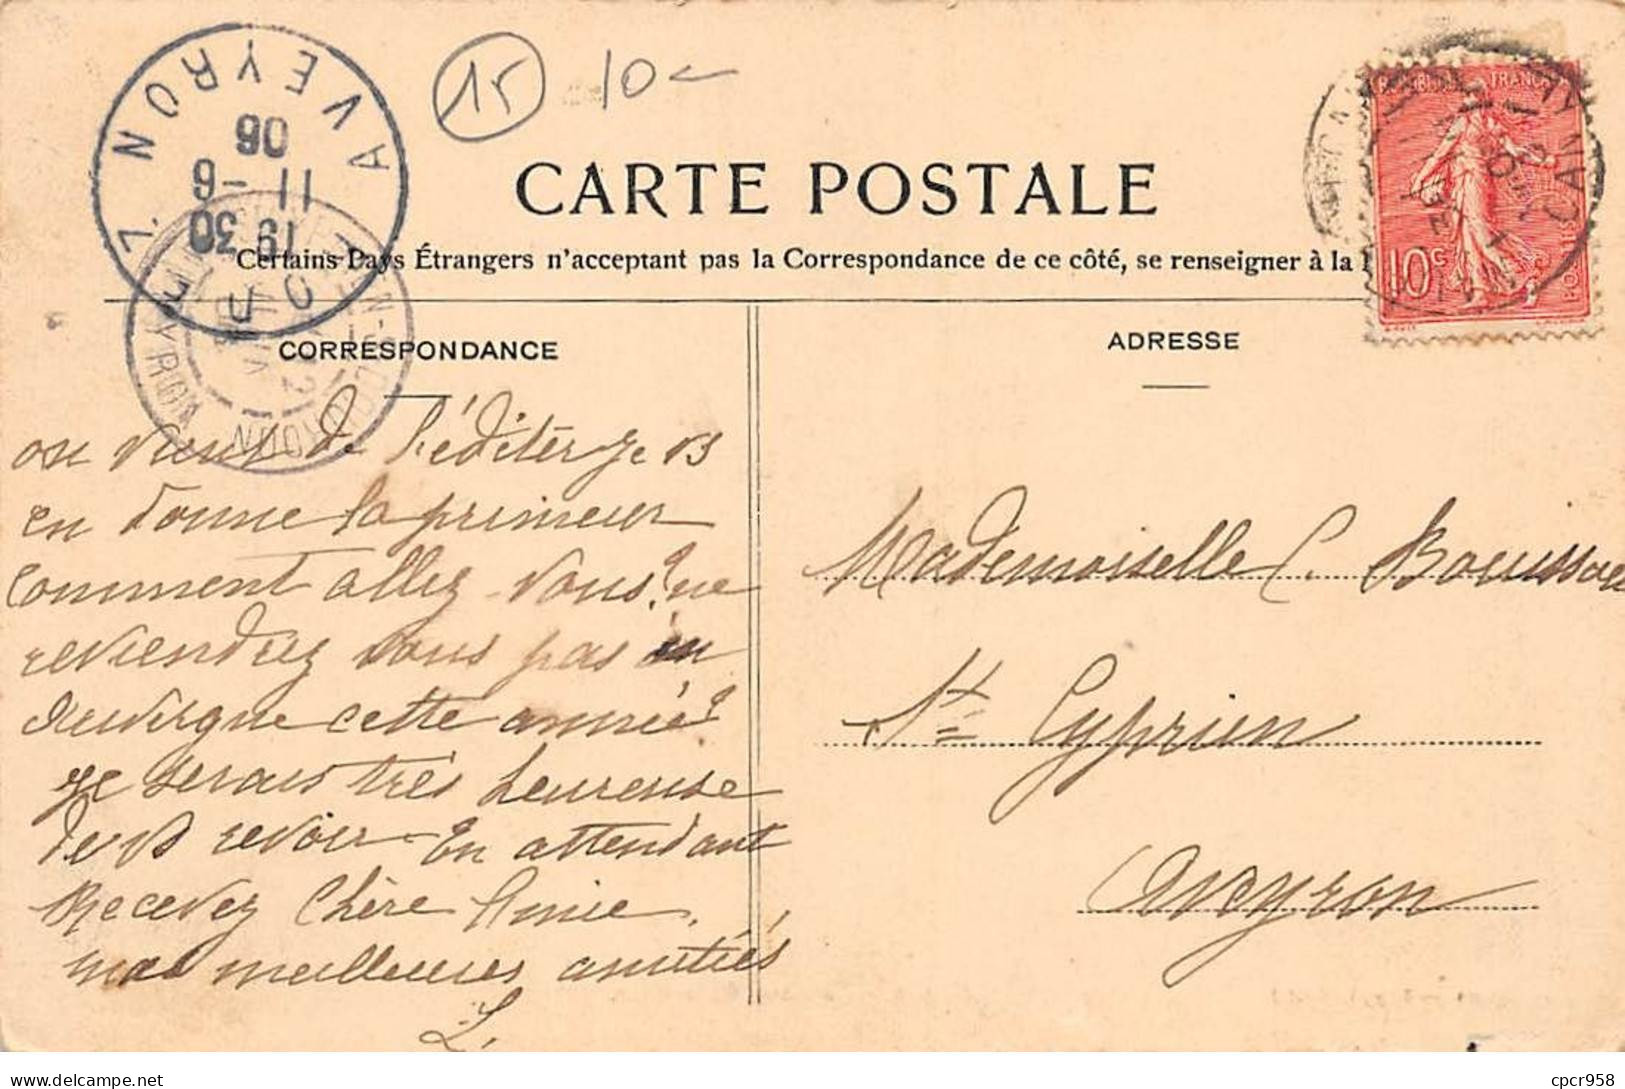 AVEYRON
06
11 -6
19 30
15 10
RÉPUBLIQUE FRANÇAISE
10c
POSTES
CANTAL
CARTE POSTALE
Certains Pays Étrangers n'acceptent pas la Correspondance de ce côté, se renseigner à la
CORRESPONDANCE
ADRESSE
AVEYRON
on vient de l'éditer je vs
en donne la primeur
comment allez vous? ne
reviendrez vous pas en
Auvergne cette année?
je serais très heureuse
de vs revoir. En attendant
Recevez Chère Amie,
mes meilleures amitiés
L.
Mademoiselle C.
St Cyprien
Aveyron
cpcr958